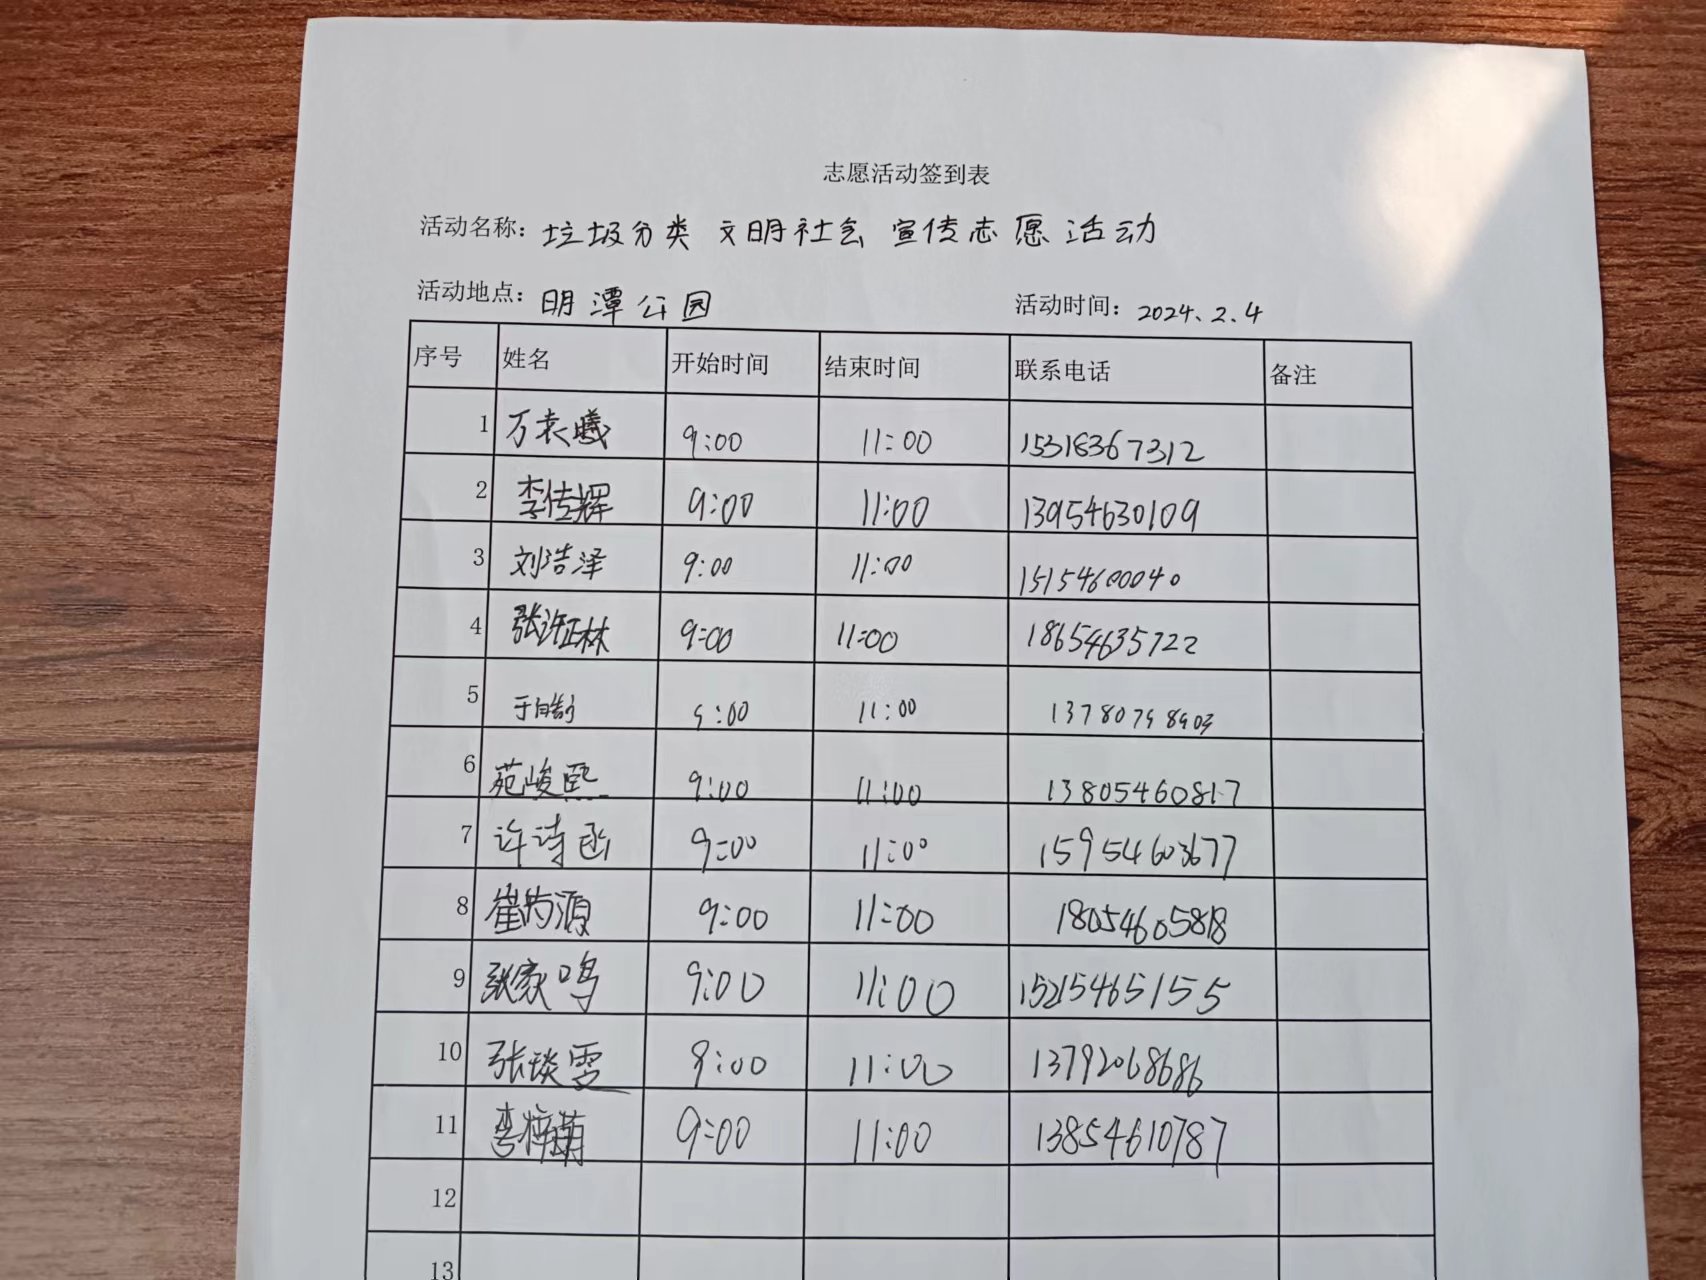 志愿活动签到表
活动名称：垃圾分类 文明社会 宣传志愿活动
活动地点：明潭公园 活动时间：2024.2.4
序号 姓名 开始时间 结束时间 联系电话 备注
1 万袁曦 9:00 11:00 15318367312
2 李佳辉 9:00 11:00 13954630109
3 刘浩泽 9:00 11:00 15154600040
4 张许正林 9:00 11:00 18654635722
5 于 9:00 11:00
6 苑峻熙 9:00 11:00 13805460817
7 许诗函 9:00 11:00 15954603677
8 崔 源 9:00 11:00 18054605818
9 张家鸣 9:00 11:00 15215465155
10 张琰雯 9:00 11:00 13792068686
11 李梓萌 9:00 11:00 13854610787
12
13